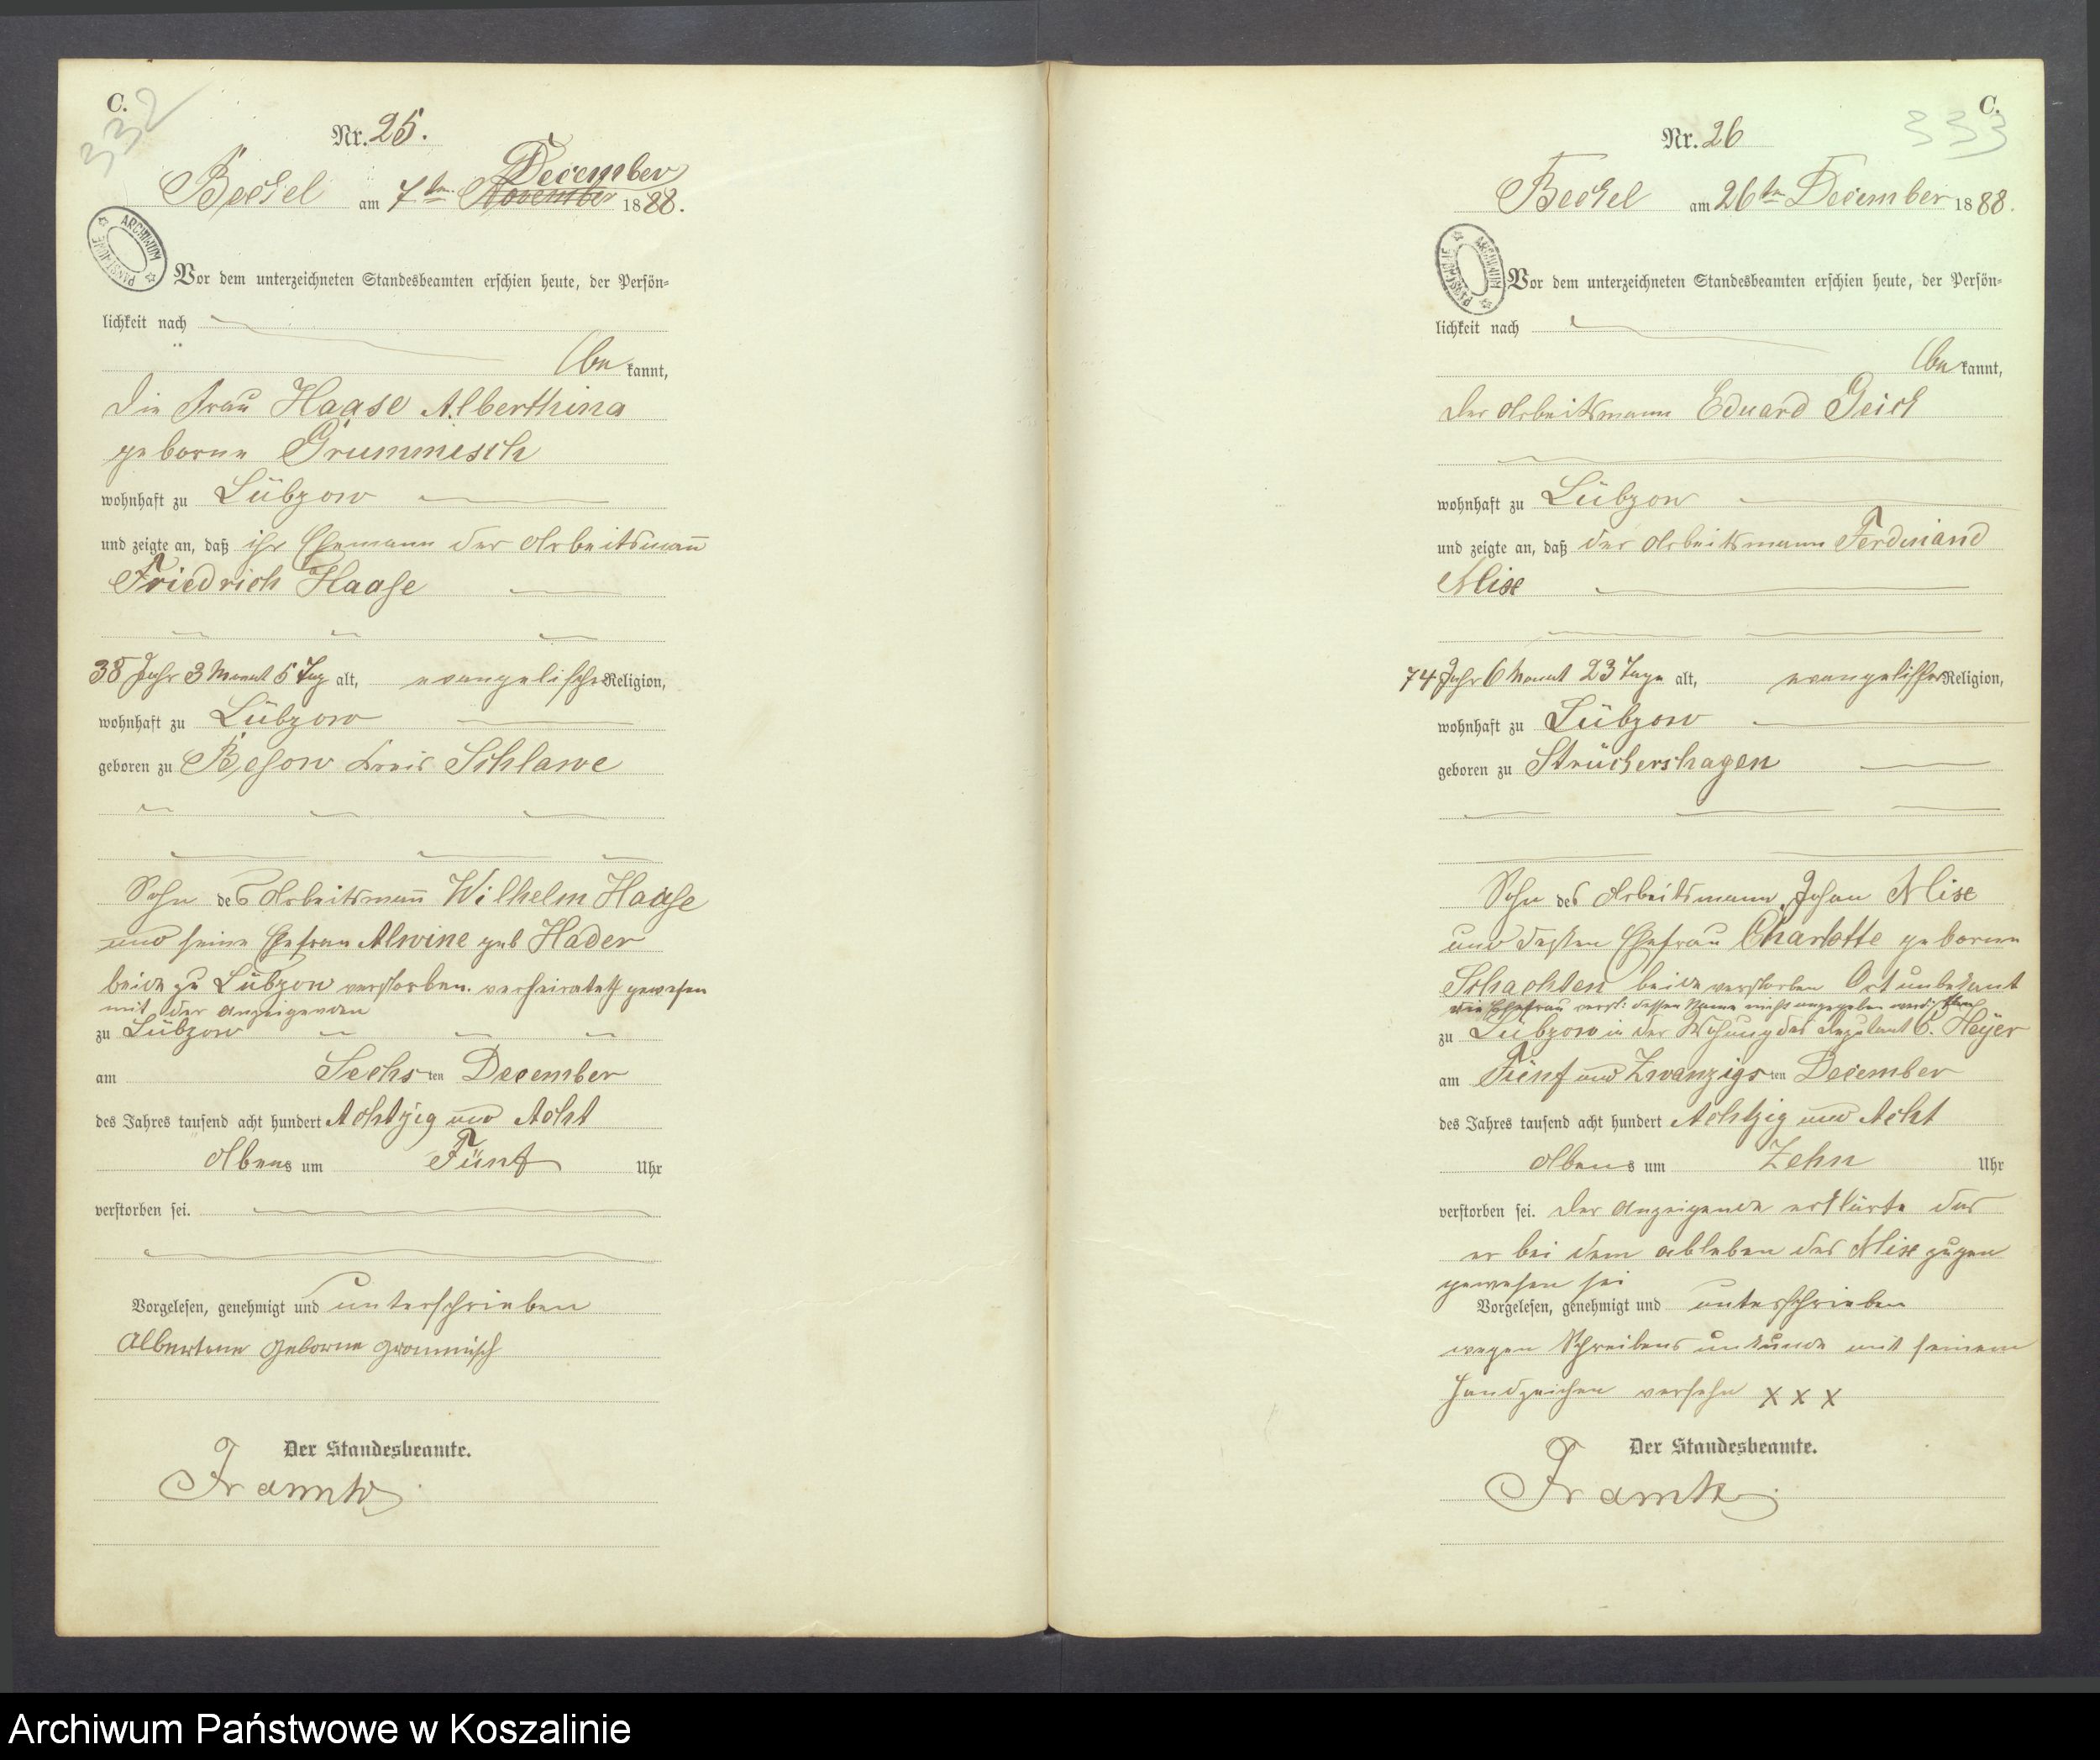 C.
332
Nr. 25.
December
Beckel am 7ten November 1888.
ARCHIWUM PAŃSTWOWE
Vor dem unterzeichneten Standesbeamten erschien heute, der Persön-
lichkeit nach
be kannt,
die Frau Haase Alberthina
geborne Grummisch
wohnhaft zu Lübzow
und zeigte an, daß ihr Ehemann der Arbeitsmañ
Friedrich Haase
38 Jahr 3 Monat 5 Tag alt, evangelischer Religion,
wohnhaft zu Lübzow
geboren zu Besow Kreis Schlawe
Sohn des Arbeitsmañ Wilhelm Haase
und seine Ehefrau Alwine geb Hader
beide zu Lübzow verstorben. verheirateth gewesen
mit der anzeigenden
zu Lübzow
am Sechsten December
des Jahres tausend acht hundert Achtzig und Acht
Abens um Fünf Uhr
verstorben sei.
Vorgelesen, genehmigt und unterschrieben
Albertine geborne grommisch
Der Standesbeamte.
Framke
C.
333
Nr. 26
Beckel am 26ten December 1888.
ARCHIWUM PAŃSTWOWE
Vor dem unterzeichneten Standesbeamten erschien heute, der Persön-
lichkeit nach
be kannt,
der Arbeitsmann Eduard Geick
wohnhaft zu Lübzow
und zeigte an, daß der Arbeitsmann Ferdinand
Mise
74 Jahr 6 Monat 23 Tage alt, evangelischer Religion,
wohnhaft zu Lübzow
geboren zu Strückershagen
Sohn des Arbeitsmann Johan Mise
und dessen Ehefrau Charlotte geborne
Schachten beide verstorben Ort unbekant
die Ehefrau verst: dessen Name nicht angegeben
zu Lübzow in der Wohnung des 6. Heyer
am Fünf und Zwanzigsten December
des Jahres tausend acht hundert Achtzig und Acht
Abens um Zehn Uhr
verstorben sei. der Anzeigende erklärte das
er bei dem ableben des Mise zugen
gewesen sei
Vorgelesen, genehmigt und unterschrieben
wegen Schreibens unkunde mit seinem
Handzeichen versehn x x x
Der Standesbeamte.
Framke
Archiwum Państwowe w Koszalinie